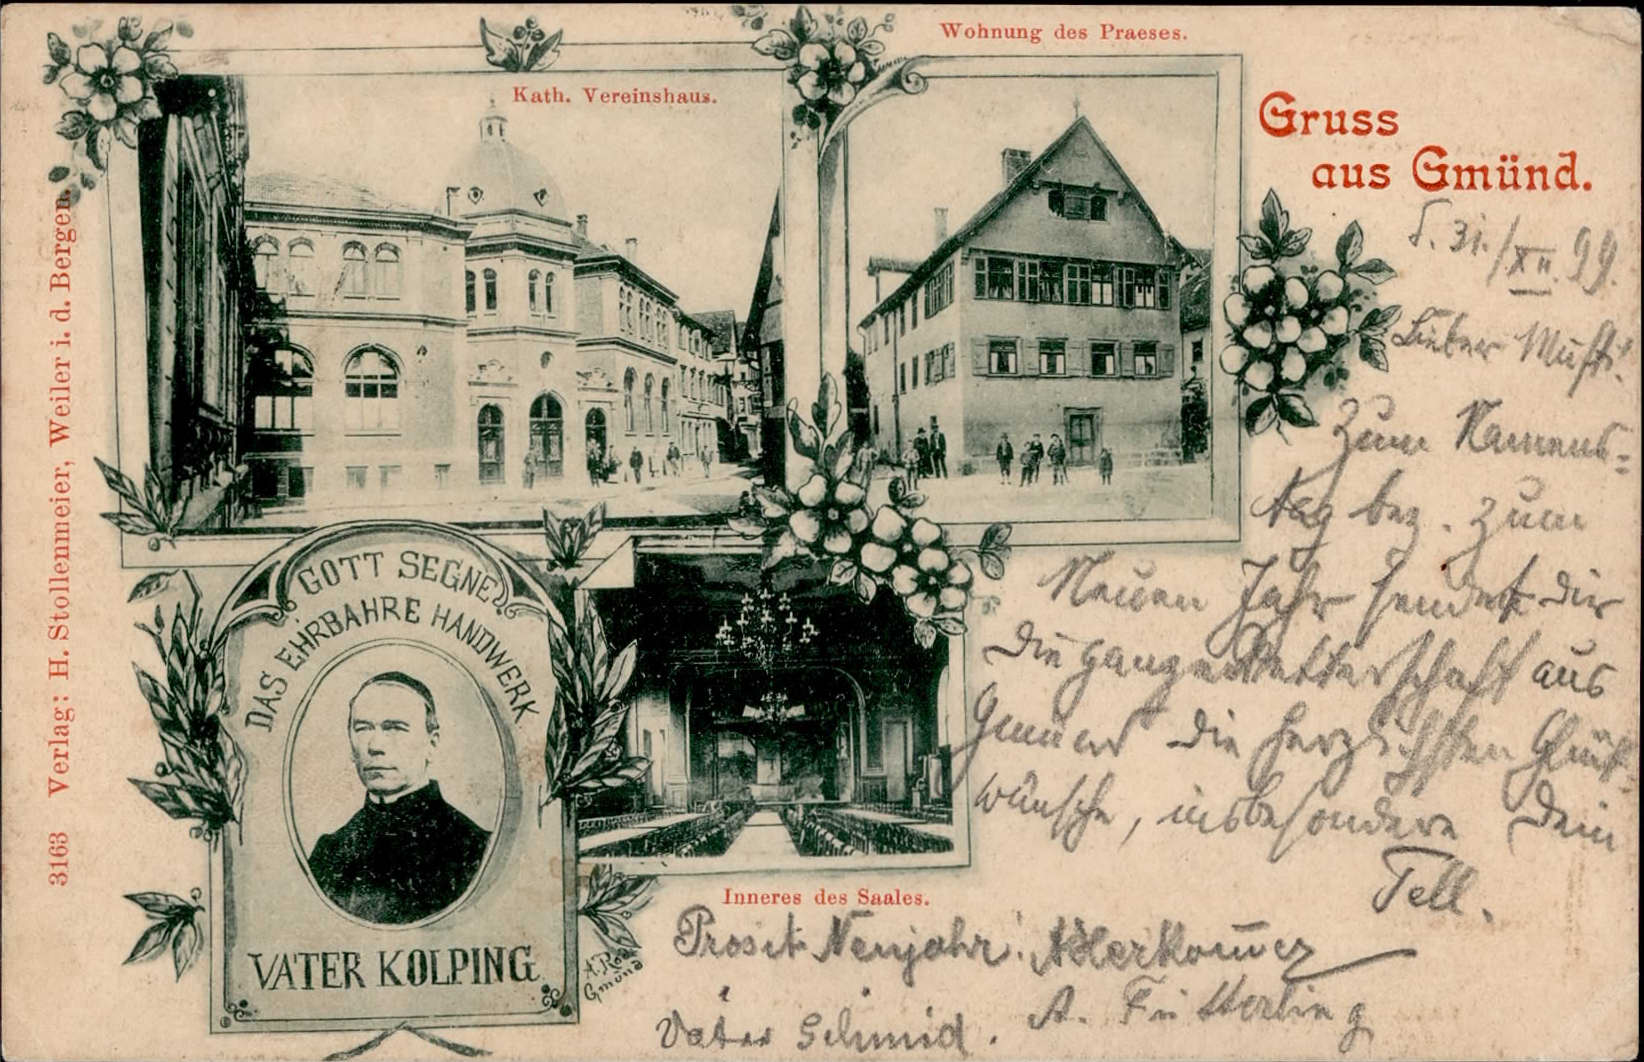 Wohnung des Praeses.
Kath. Vereinshaus.
Gruss
aus Gmünd.
31./XII. 99.
Lieber
Zum Namens=
tag bez. zum
Neuen Jahr sendet dir
die ganze Vetterschaft aus
Gmünd die herzlichsten Glück-
wünsche, insbesondere Dein
Tell.
Prosit Neujahr!
Vater Schmid.
A.
GOTT SEGNE
DAS EHRBAHRE HANDWERK
VATER KOLPING
Inneres des Saales.
Gmünd
3163 Verlag: H. Stollenmeier, Weiler i. d. Bergen.